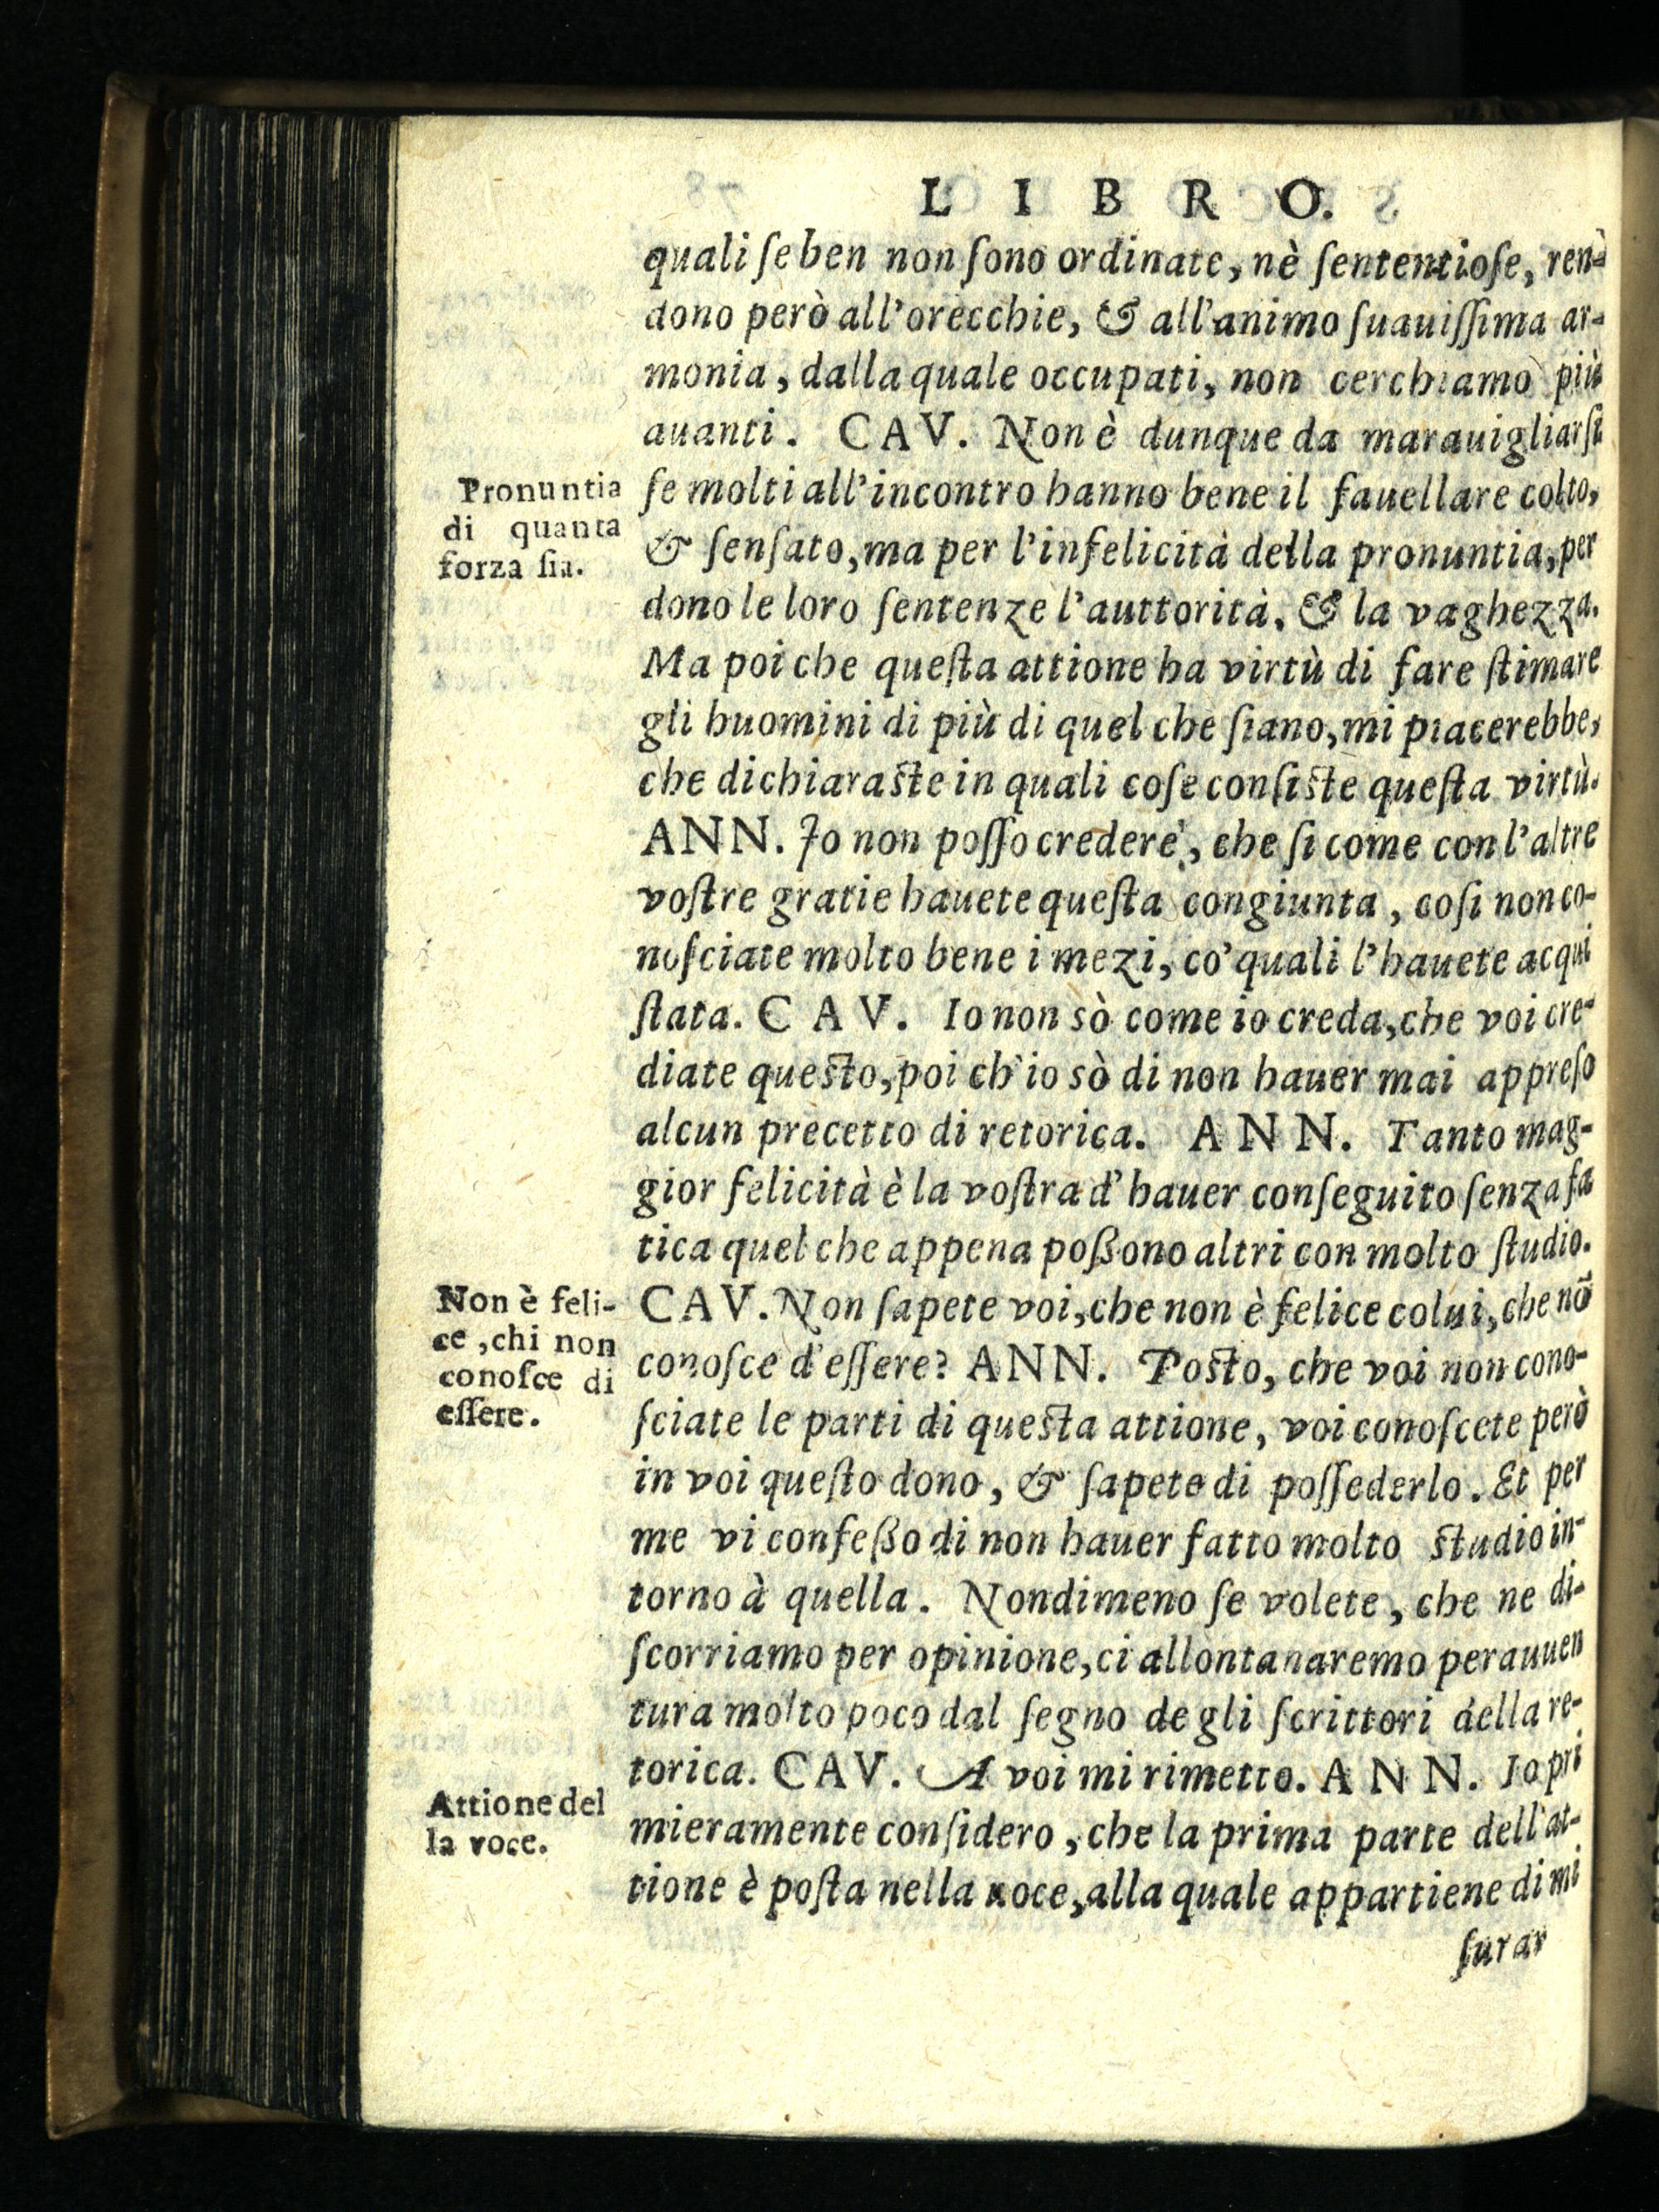 LIBRO.
quali ſe ben non ſono ordinate, nè ſententioſe, ren-
dono però all'orecchie, & all'animo ſuauiſſima ar-
monia, dalla quale occupati, non cerchiamo più
auanti. CAV. Non è dunque da marauigliarſi
Pronuntia
di quanta
forza ſia.
ſe molti all'incontro hanno bene il fauellare colto,
& ſenſato, ma per l'infelicità della pronuntia, per
dono le loro ſentenze l'auttorità, & la vaghezza.
Ma poi che queſta attione ha virtù di fare ſtimare
gli huomini di più di quel che ſiano, mi piacerebbe,
che dichiaraſte in quali coſe conſiſte queſta virtù.
ANN. Io non poſſo credere, che ſi come con l'altre
voſtre gratie hauete queſta congiunta, coſi non co-
noſciate molto bene i mezi, co'quali l'hauete acqui
ſtata. CAV. Io non sò come io creda, che voi cre-
diate queſto, poi ch'io sò di non hauer mai appreſo
alcun precetto di retorica. ANN. Tanto mag-
gior felicità è la voſtra d'hauer conſeguito ſenza fa
tica quel che appena poßono altri con molto ſtudio.
Non è feli-
ce, chi non
conoſce di
eſſere.
CAV. Non ſapete voi, che non è felice colui, che nō
conoſce d'eſſere? ANN. Poſto, che voi non cono-
ſciate le parti di queſta attione, voi conoſcete però
in voi queſto dono, & ſapete di poſſederlo. Et per
me vi confeßo di non hauer fatto molto ſtudio in-
torno à quella. Nondimeno ſe volete, che ne di-
ſcorriamo per opinione, ci allontanaremo perauuen
tura molto poco dal ſegno de gli ſcrittori della re-
torica. CAV. A voi mi rimetto. ANN. Io pri
Attione del
la voce.
mieramente conſidero, che la prima parte dell'at-
tione è poſta nella uoce, alla quale appartiene di mi
ſurar